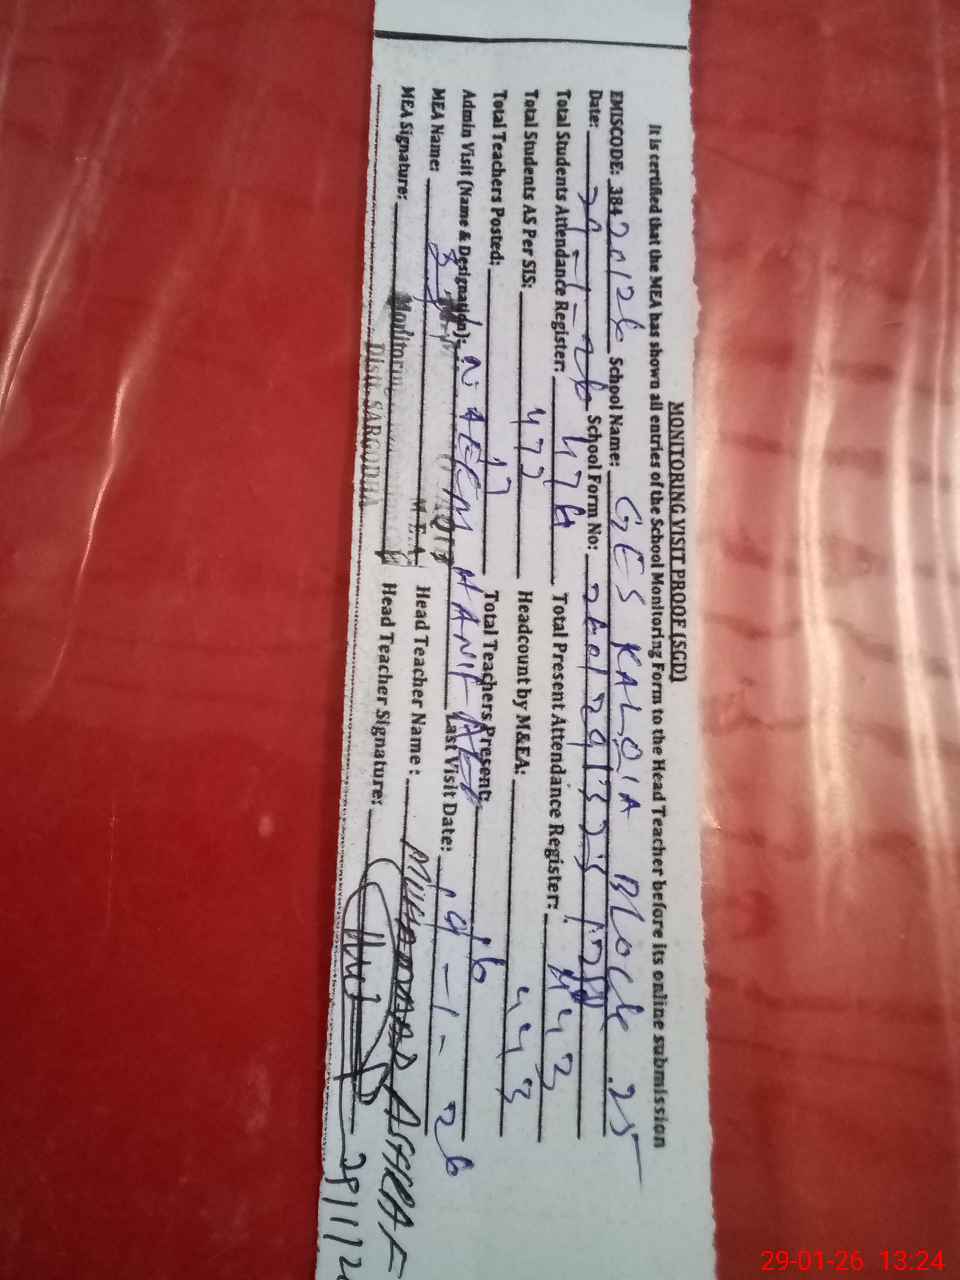 MONITORING VISIT PROOF (SGD)
It is certified that the MEA has shown all entries of the School Monitoring Form to the Head Teacher before its online submission
EMISCODE: 38420126 School Name: GES KALOIA BLOCK 25
Date: 29-1-26 School Form No:
Total Students Attendance Register: 474 Total Present Attendance Register: 443
Total Students AS Per SIS: 472 Headcount by M&EA: 443
Total Teachers Posted: 17 Total Teachers Present: 16
Admin Visit (Name & Designation): NAEEM HANIF AEO Last Visit Date: 19-1-26
MEA Name: M.E.A Head Teacher Name: MUHAMMAD ASHRAF
MEA Signature: Monitoring Head Teacher Signature:
Distt. SARGODHA
29-01-26 13:24